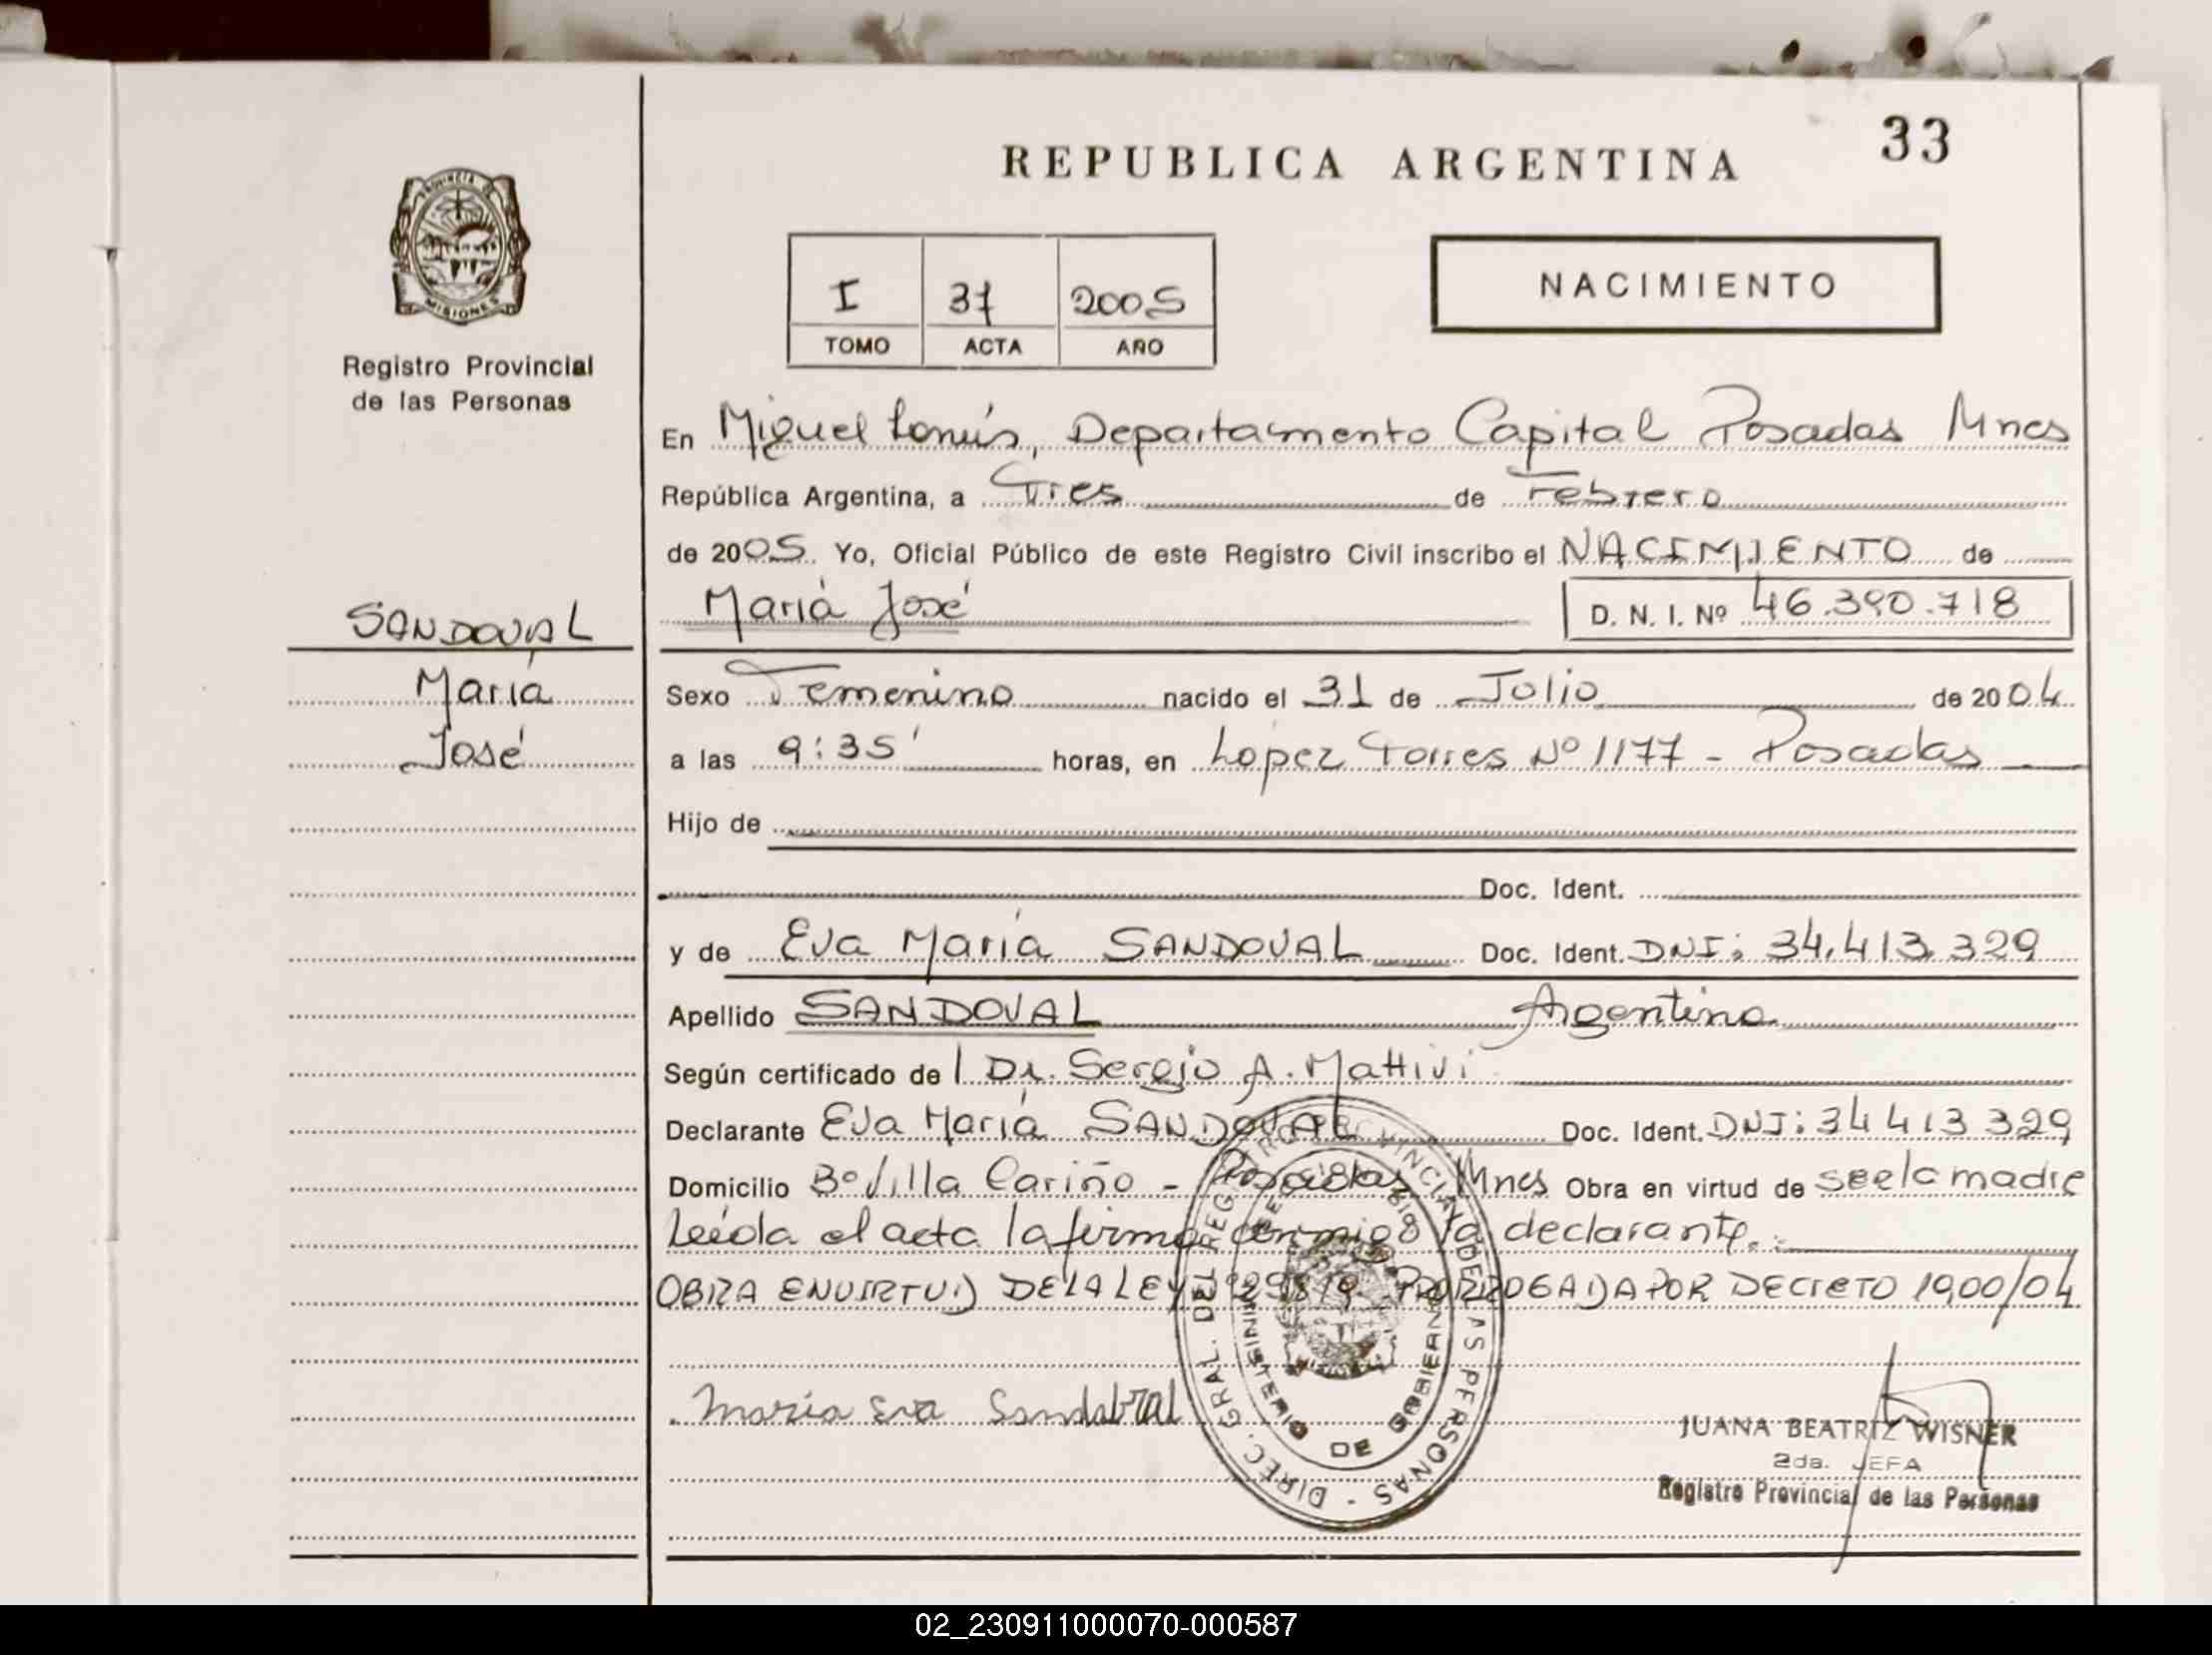 33
REPUBLICA ARGENTINA
PROVINCIA DE
MISIONES
Registro Provincial
de las Personas
I 37 2005
TOMO ACTA AÑO
NACIMIENTO
En Miguel Lanús, Departamento Capital Posadas Mnes
República Argentina, a Tres de Febrero
de 2005. Yo, Oficial Público de este Registro Civil inscribo el NACIMIENTO de
María José D. N. I. Nº 46.390.718
SANDOVAL
María
José
Sexo Femenino nacido el 31 de Julio de 2004
a las 9:35' horas, en Lopez Torres Nº 1177 - Posadas
Hijo de
Doc. Ident.
y de Eva María SANDOVAL Doc. Ident. DNI: 34.413.329
Apellido SANDOVAL Argentina
Según certificado de l Dr. Sergio A. Mattivi
Declarante Eva María SANDOVAL Doc. Ident. DNI: 34 413 329
Domicilio Bº Villa Cariño - Posadas Mnes Obra en virtud de see la madre
Leída el acta la firma conmigo la declarante.
OBRA EN VIRTUD DE LA LEY PRORROGADA POR DECRETO 1900/04
María Eva Sandobral
DIREC. GRAL. DEL REGISTRO PROVINCIAL DE LAS PERSONAS -
MINISTERIO DE GOBIERNO
JUANA BEATRIZ WISNER
2da. JEFA
Registro Provincial de las Personas
02_230911000070-000587